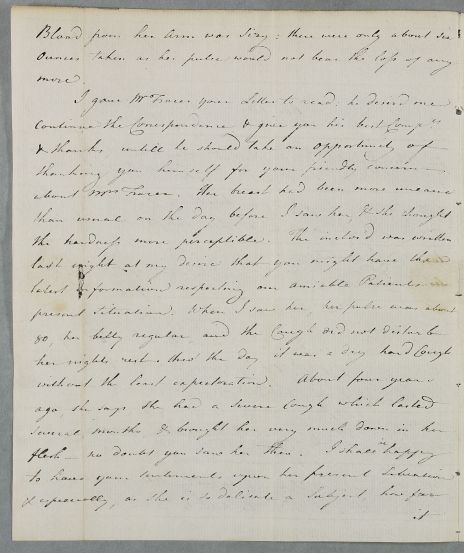 Blood from her Arm was Sizy; there were only about six
Ounces taken as her pulse would not bear the loss of any
more.
I gave Mr Fraser your Letter to read; he desired me
continue the Correspondence & give you his best Compts
& thanks untill he should take an opportunity of
thanking you himself for your friendly concern
about Mrs Fraser. Her breast had been more uneasie
than usual on the day before I saw her, & she thought
the hardness more perceptible. The inclosd was written
last night at my desire that you might have the
latest information respecting our amiable Patients
present Situation. When I saw her, her pulse was about
80, her belly regular and the Cough did not disturb
her nights rest, thro' the day it was a dry hard Cough
without the least expectoration. About four years
ago she says she had a severe Cough which lasted
several months & brought her very much down in her
flesh — no doubt you saw her then. I shall be happy
to have your sentiments upon her present Situation
& especially, as she is so delicate a Subject, how far
it